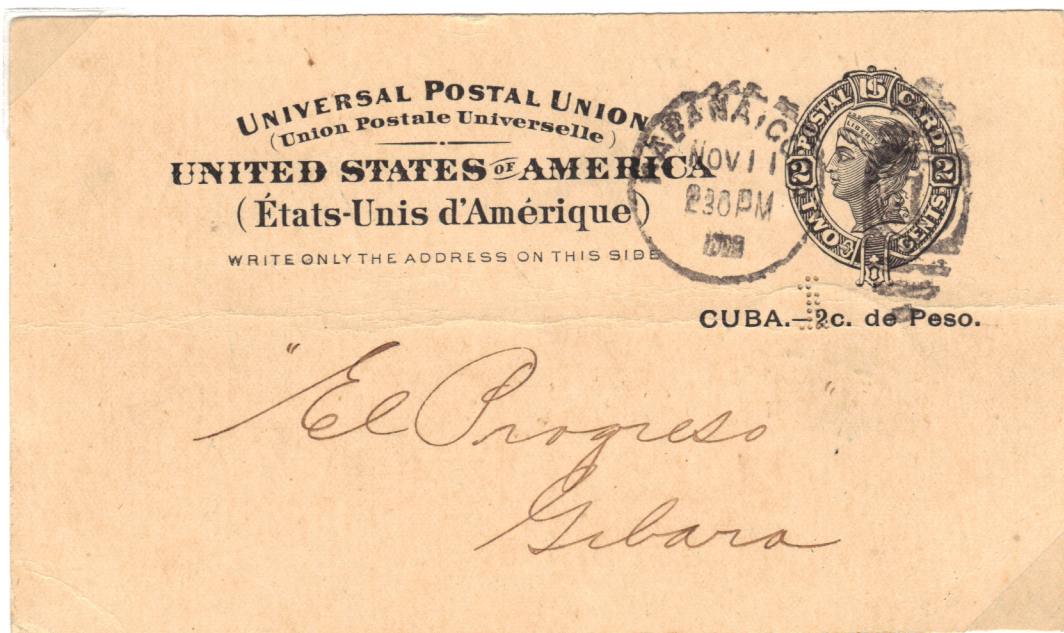 UNIVERSAL POSTAL UNION
(Union Postale Universelle)
UNITED STATES OF AMERICA
(États-Unis d'Amérique)
WRITE ONLY THE ADDRESS ON THIS SIDE
HABANA, CU
NOV 11
230 PM
US
POSTAL CARD
LIBERTY
2 2
TWO CENTS
CUBA.—2c. de Peso.
"El Progreso"
Gibara